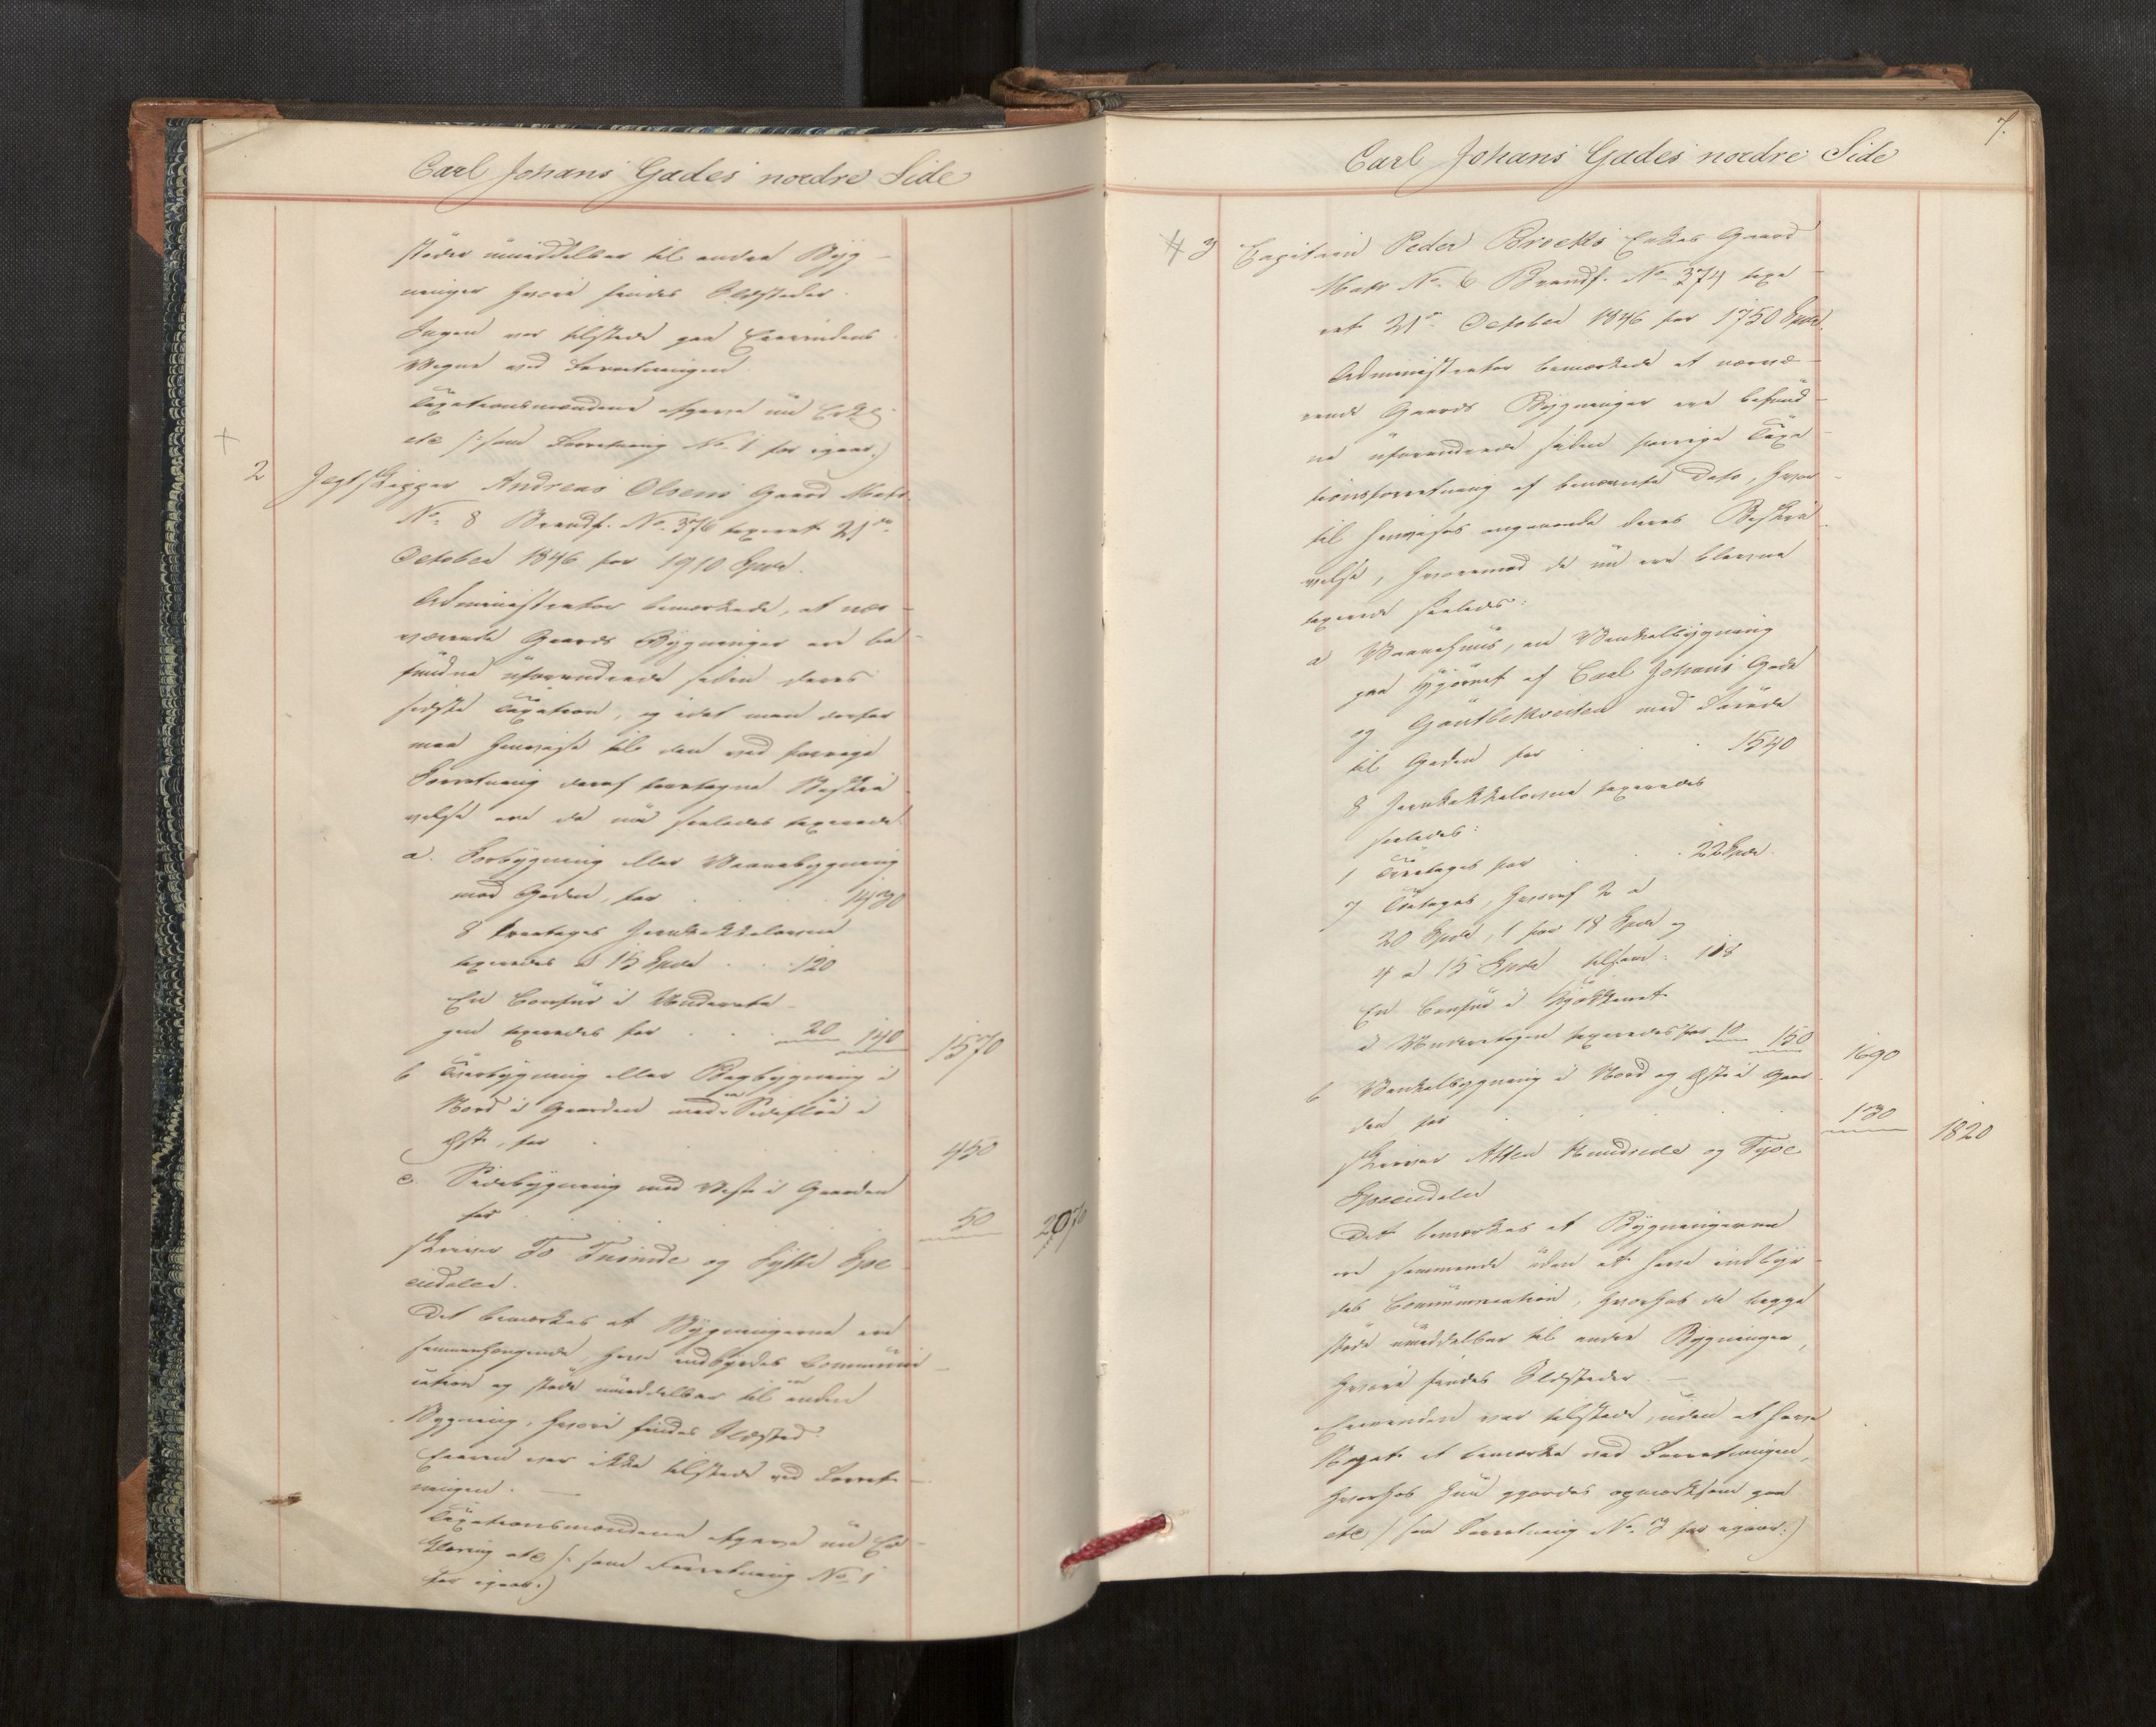 Carl Johans Gades nordre Side
støder umiddelbar til andre Byg-
ninger hvori findes Ildsteder.
Ingen var tilstede paa Eierindens
Vegne ved Forretningen
Taxationsmændene afgave nu Erkl:
etc (: som Forretning No 1 for igaar.)
2 Jegtskipper Andreas Olsens Gaard Matr.
No 8 Brandf. No 376 taxeret 21de
October 1846 for 1910 Spd.
Administrator bemærkede, at nær-
værende Gaards Bygninger ere be-
fundne uforandrede siden deres
sidste Taxation, og idet man derfor
maa henvise til den ved forrige
Forretning deraf foretagne Beskri-
velse ere de nu saaledes taxerede
a. Forbygning eller Vaanebygning
mod Gaden, for 1430
8 treetages Jernkakkelovne
taxeredes a 15 Spd 120
En Comfur i Undereta-
gen taxeredes for 20 140 1570
b Tverbygning eller Bagbygning i
Nord i Gaarden med en Sidefløi i
Øst, for 450
c. Sidebygning mod Vest i Gaarden
for 50 2070
skriver To Tusinde og Sytti Spe
ciedaler.
Det bemærkes at Bygningerne ere
sammenhængende, have indbyrdes Communi-
cation og støde umiddelbar til anden
Bygning, hvori findes Ildsted.
Eieren var ikke tilstede ved Forret-
ningen.
Taxationsmændene afgave nu Er-
klæring etc (: som Forretning No 1
for igaar:)
7.
Carl Johans Gades nordre Side
4 3 Capitain Peder Brocks Enkes Gaard
Matr No 6 Brandf. No 374 taxe-
ret 21de October 1846 for 1750 Spd.
Administrator bemærkede at nærvæ-
rende Gaards Bygninger ere befund-
ne uforandrede siden forrige Taxa-
tionsforretning af benævnte Dato, hvor-
til henvises angaaende deres Beskri-
velse, hvoremod de nu ere blevne
taxerede saaledes:
a Vaanehuus, en Vinkelbygning
paa Hjørnet af Carl Johans Gade
og Gautbekveiten med Facade
til Gaden for 1540
8 Jernkakkelovne taxeredes
saaledes:
1 for 22 Spd.
7 Toetages, hvoraf 2 a
20 Spd, 1 for 18 Spd og
4 a 15 Spd tilsam: 118
En Comfur i Kjøkkenet
i Underetagen taxeredes for 10 150 1690
b Vinkelbygning i Nord og Øst i Gaar-
den for 130 1820
skriver Atten Hundrede og Tyve
Speciedaler
Det bemærkes at Bygningerne
ere sammende uden at have indbyr-
des Communication, hvorhos de begge
støde umiddelbar til andre Bygninger,
hvori findes Ildsteder.
Eierinden var tilstede, uden at have
Noget at bemærke ved Forretningen,
hvorhos hun gjordes opmærksom paa
etc (som Forretning No 3 for igaar:)